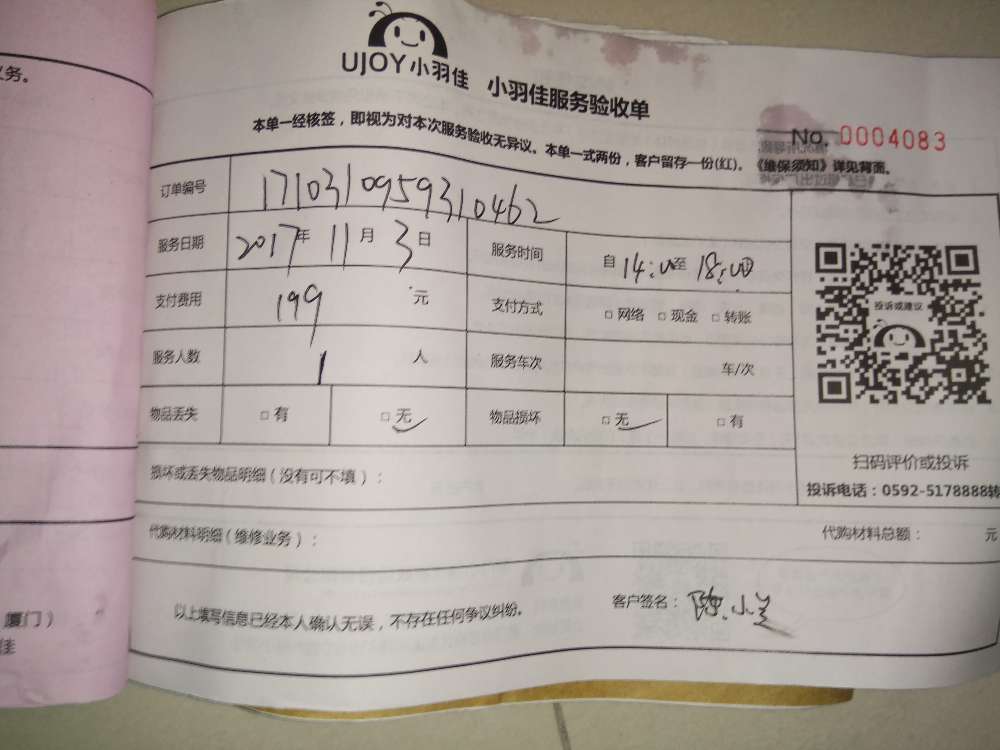 义务。
UJOY小羽佳 小羽佳服务验收单
本单一经核签，即视为对本次服务验收无异议。本单一式两份，客户留存一份(红)。《维保须知》详见背面。
No. 0004083
订单编号 171031095931 0462
服务日期 2017年 11月 3日 服务时间 自14:00至 18:00
支付费用 199 元 支付方式 □ 网络 □ 现金 □ 转账
服务人数 1 人 服务车次 车/次
物品丢失 □ 有 □ 无 物品损坏 □ 无 □ 有
投诉或建议
扫码评价或投诉
投诉电话：0592-5178888转
损坏或丢失物品明细（没有可不填）：
代购材料明细（维修业务）： 代购材料总额： 元
以上填写信息已经本人确认无误，不存在任何争议纠纷。 客户签名：陈小兰
厦门）
佳